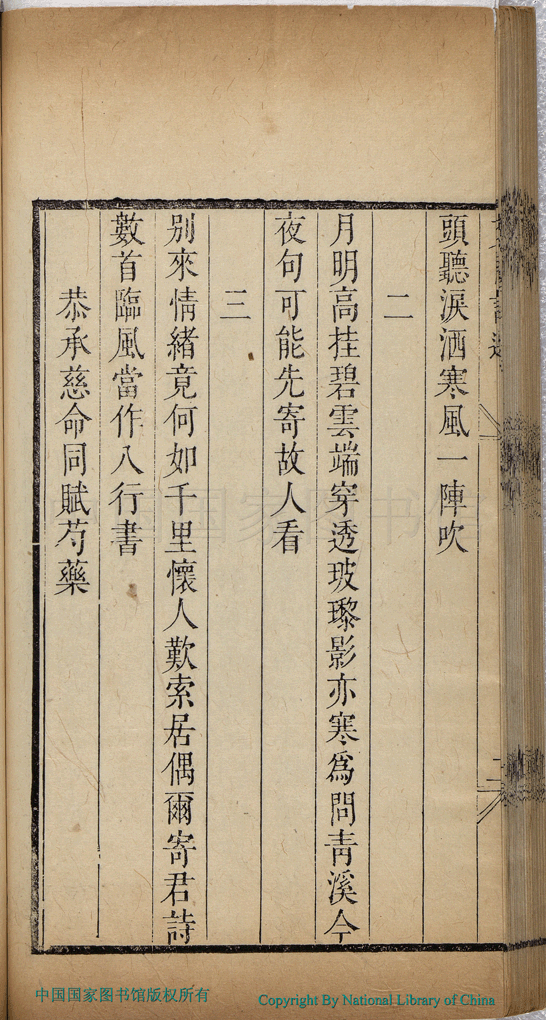 頭聽淚洒寒風一陣吹
二
月明高挂碧雲端穿透玻瓈影亦寒爲問青溪今
夜句可能先寄故人看
三
别來情緒竟何如千里懷人歎索居偶爾寄君詩
數首臨風當作八行書
恭承慈命同賦芍藥
中国国家图书馆版权所有
Copyright By National Library of China